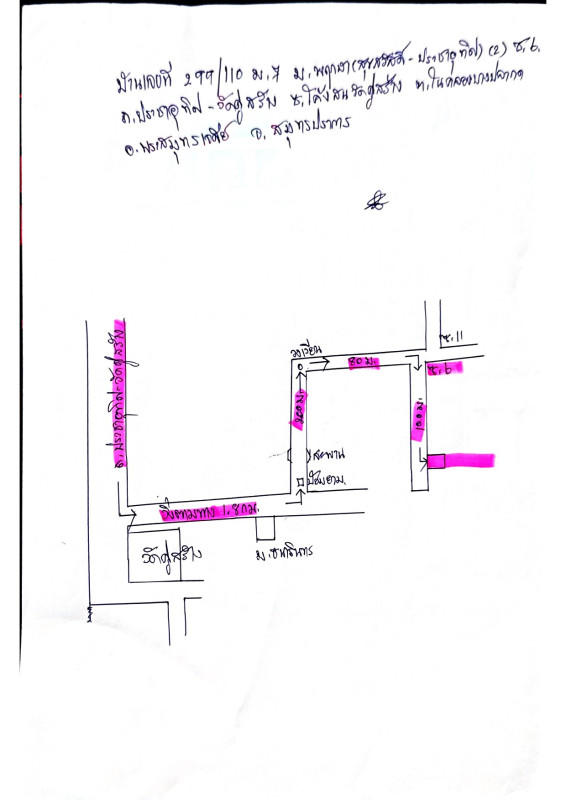 บ้านเลขที่ 299/110 ม.7 ม.พฤกษา(สุขสวัสดิ์-ประชาอุทิศ)(2) ซ.6
ถ.ประชาอุทิศ-วัดคู่สร้าง ซ.โค้งสนวัดคู่สร้าง ต.ในคลองบางปลากด
อ.พระสมุทรเจดีย์ จ.สมุทรปราการ
ซ.11
วงเวียน
80 ม.
ซ.6
ถ.ประชาอุทิศ-วัดคู่สร้าง
200 ม.
100 ม.
สะพาน
ป้อมยาม
วิ่งตามทาง 1.8 กม.
วัดคู่สร้าง
ม.ธนาธินทร